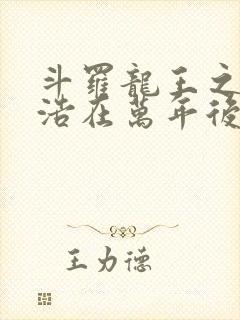 斗羅龍王之
浩在萬年後
王力德